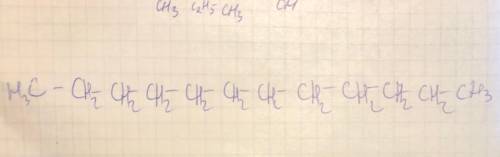 CH3 C2H5 CH3 CH
H3C - CH2 - CH2 - CH2 - CH2 - CH2 - CH2 - CH2 - CH2 - CH2 - CH2 - CH3